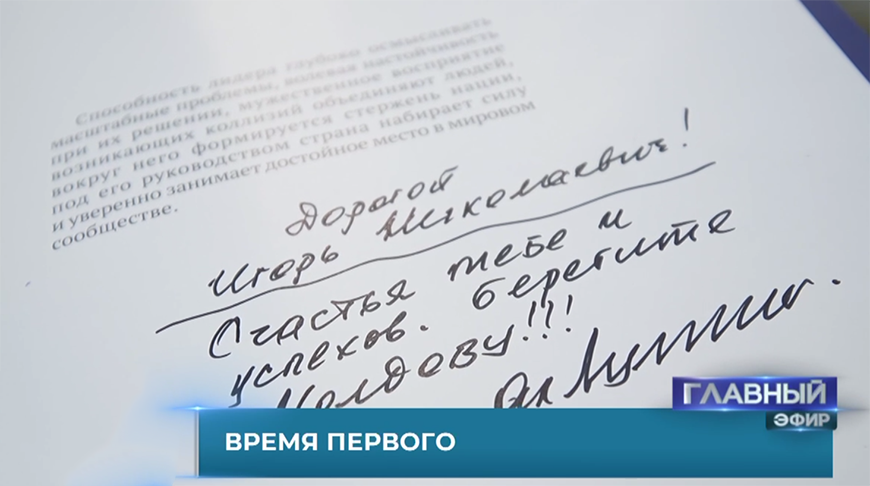 Способность лидера глубоко осмысливать
масштабные проблемы, волевая настойчивость
при их решении, мужественное восприятие
возникающих коллизий объединяют людей,
вокруг него формируется стержень нации,
под его руководством страна набирает силу
и уверенно занимает достойное место в мировом
сообществе.
Дорогой
Игорь Николаевич!
Счастья тебе и
успехов. берегите
Молдову!!!
ГЛАВНЫЙ
ЭФИР
ВРЕМЯ ПЕРВОГО